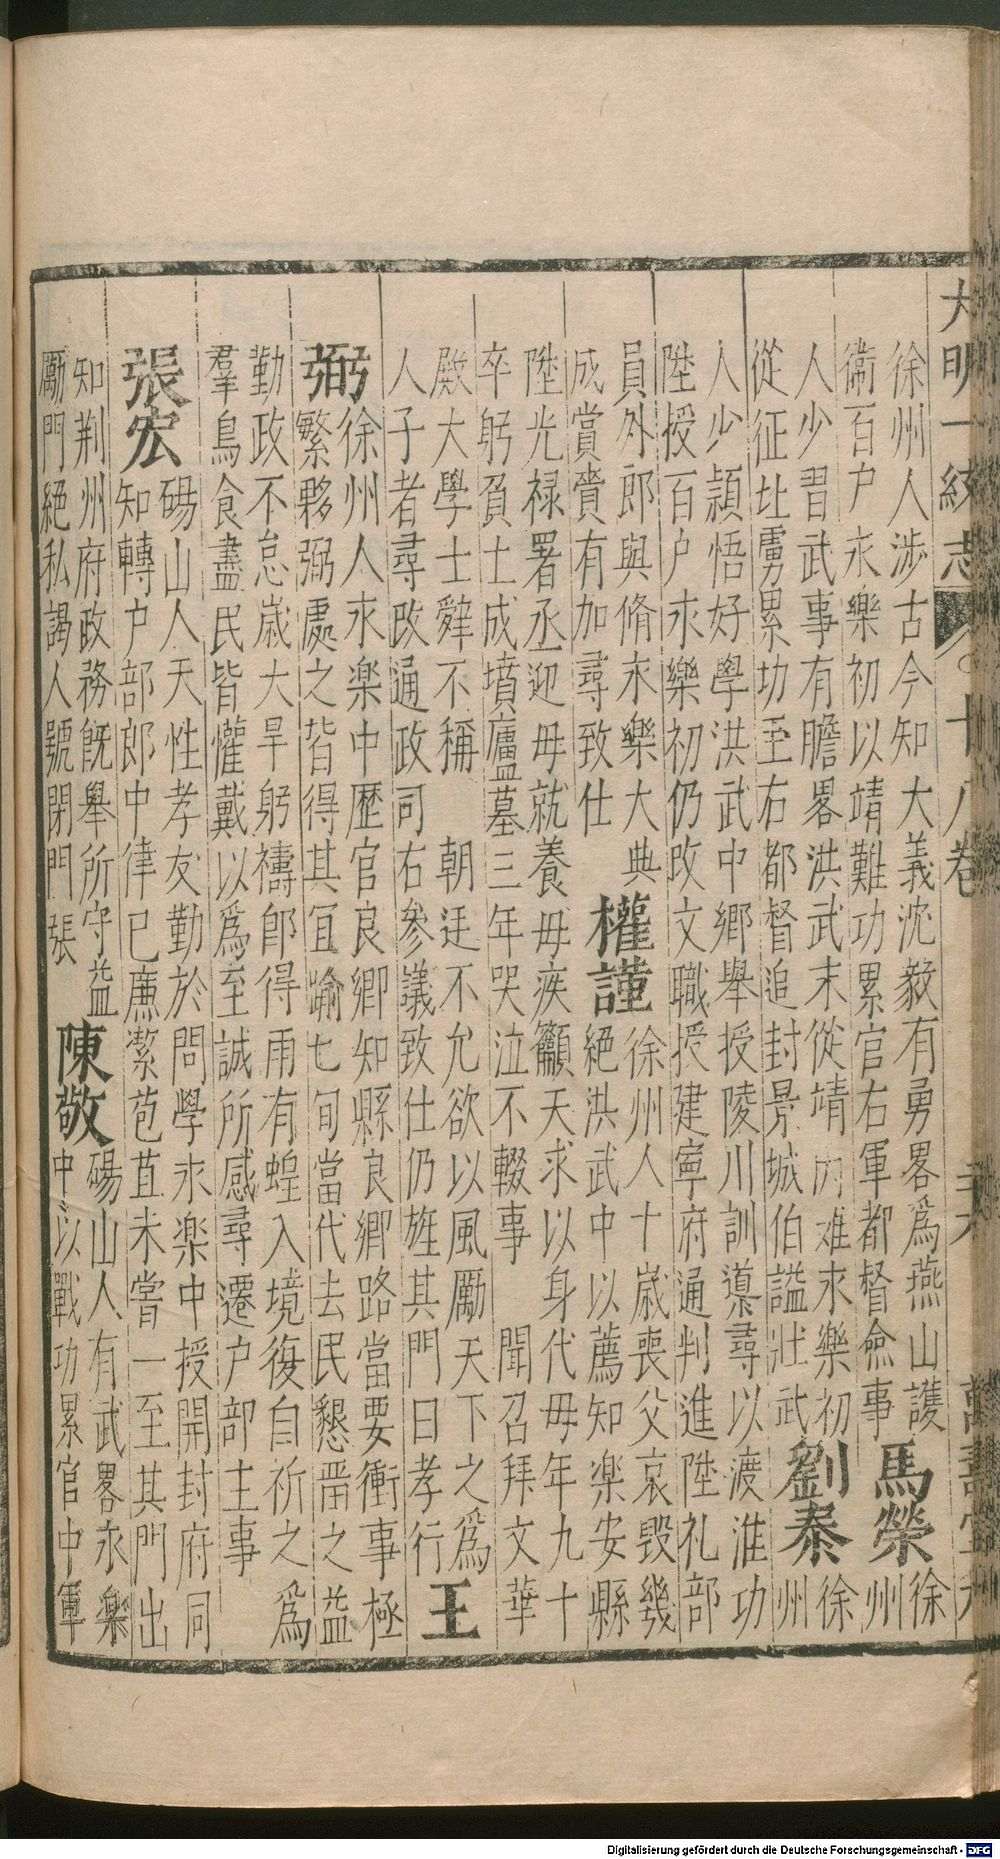 大明一統志 十八卷
徐州人涉古今知大義沈毅有勇畧為燕山護
衞百户永樂初以靖難功累官右軍都督僉事
馬榮
徐
州
人少習武事有膽畧洪武末從靖内难永樂初
從征北虜累功至右都督追封景城伯謚壯武
劉泰
徐
州
人少頴悟好學洪武中鄉舉授陵川訓導尋以渡淮功
陞授百户永樂初仍改文職授建寧府通判進陞礼部
員外郎與脩永樂大典
成賞賚有加尋致仕
權謹
徐州人十歲喪父哀毀幾
絕洪武中以薦知楽安縣
陞光禄署丞迎母就養母疾籲天求以身代母年九十
卒躬負土成墳廬墓三年哭泣不輟事 聞召拜文華
殿大學士辭不稱 朝廷不允欲以風勵天下之為
人子者尋改通政司右參議致仕仍旌其門曰孝行
王
弼
徐州人永楽中歷官良鄉知縣良鄉路當要衝事極
繁夥弼處之皆得其宜喻七旬當代去民懇畱之益
勤政不怠歲大旱躬禱郎得雨有蝗入境復自祈之為
羣鳥食盡民皆懽戴以為至誠所感尋遷户部主事
張宏
碭山人天性孝友勤於問學永楽中授開封府同
知轉户部郎中律已廉潔苞苴未嘗一至其門出
知荆州府政務旣舉所守益
勵門絕私謁人號閉門張
陳敬
碭山人有武畧永樂
中以戰功累官中軍
Digitalisierung gefördert durch die Deutsche Forschungsgemeinschaft - DFG